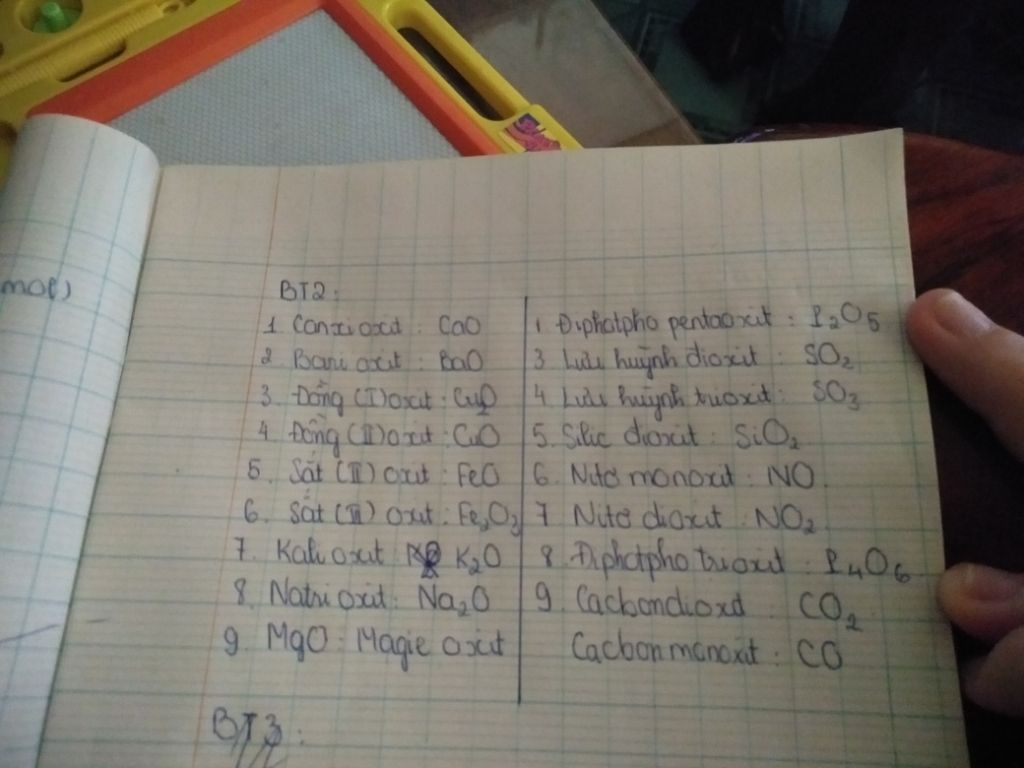 mol)
BT2:
1. Canxi oxit : CaO
2. Bari oxit : BaO
3. Đồng (I) oxit : Cu2O
4. Đồng (II) oxit : CuO
5. Sắt (II) oxit : FeO
6. Sắt (III) oxit : Fe2O3
7. Kali oxit K2O
8. Natri oxit : Na2O
9. MgO : Magie oxit
1 Điphotpho pentaoxit : P2O5
3 Lưu huỳnh đioxit : SO2
4 Lưu huỳnh trioxit : SO3
5. Silic dioxit : SiO2
6. Nitơ monoxit : NO
7 Nitơ dioxit : NO2
8 Điphotpho trioxit : P4O6
9. Cacbondioxd CO2
Cacbonmonoxit : CO
BT3: